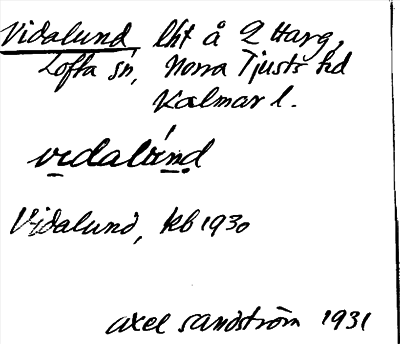 Vidalund, lht å Q Harg,
Lofta sn, Norra Tjusts hd
Kalmar l.
vidalúnd
Vidalund, kb 1930
Axel Sandström 1931